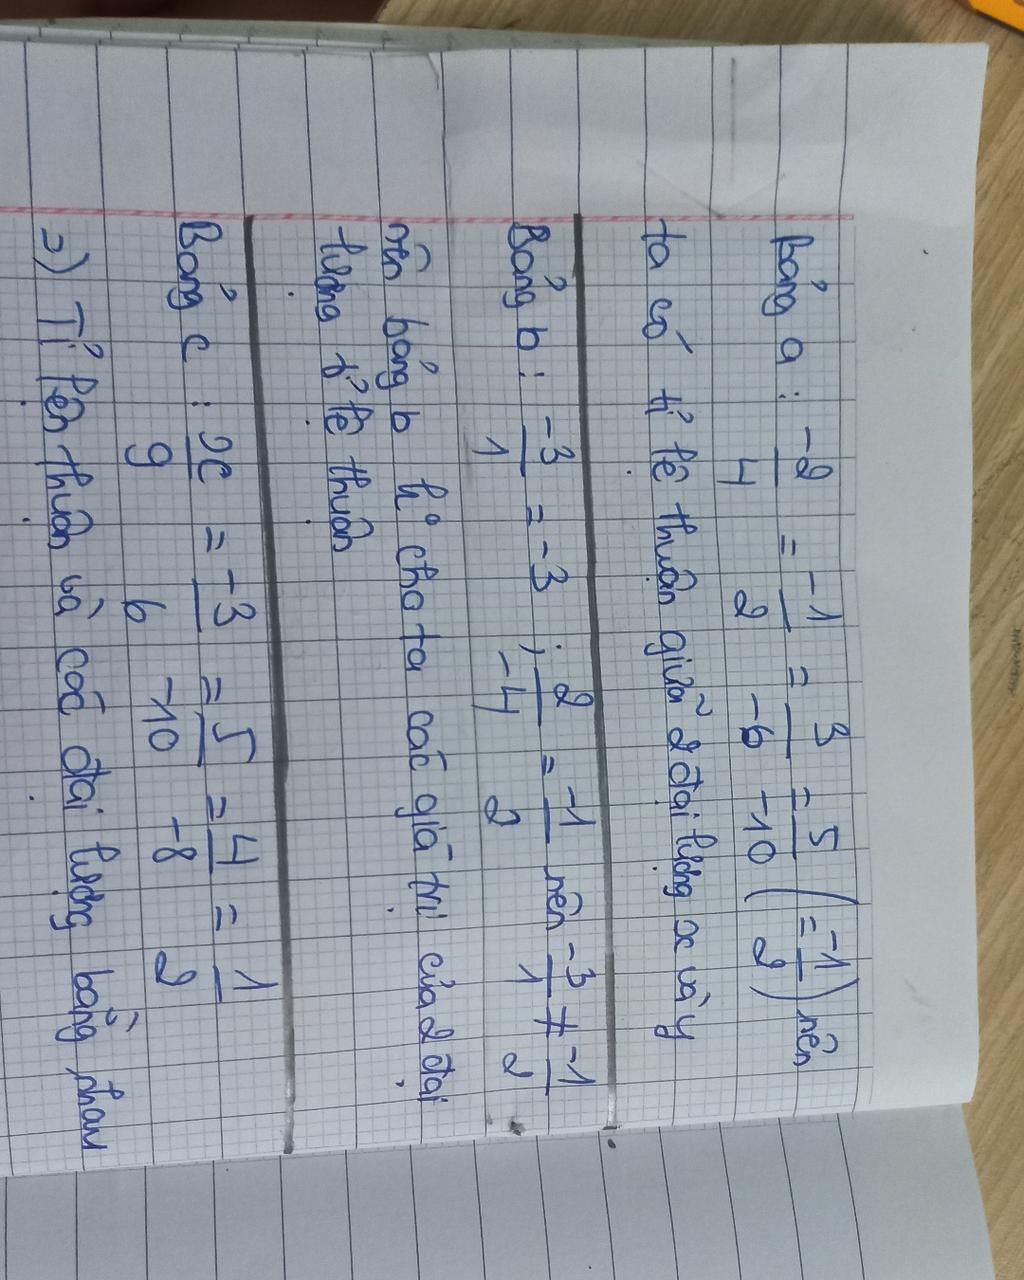 bảng a : -2/4 = -1/2 = 3/-6 = 5/-10 (= -1/2) nên
ta có tỉ lệ thuận giữa 2 đại lượng x và y
Bảng b : -3/1 = -3 ; 2/-4 = -1/2 nên -3/1 ≠ -1/2
nên bảng b cho ta các giá trị của 2 đại
lượng tỉ lệ thuận
Bảng c : x/9 = -3/6 = 5/-10 = 4/-8 = 1/2
Tỉ lệ thuận và các đại lượng bằng nhau